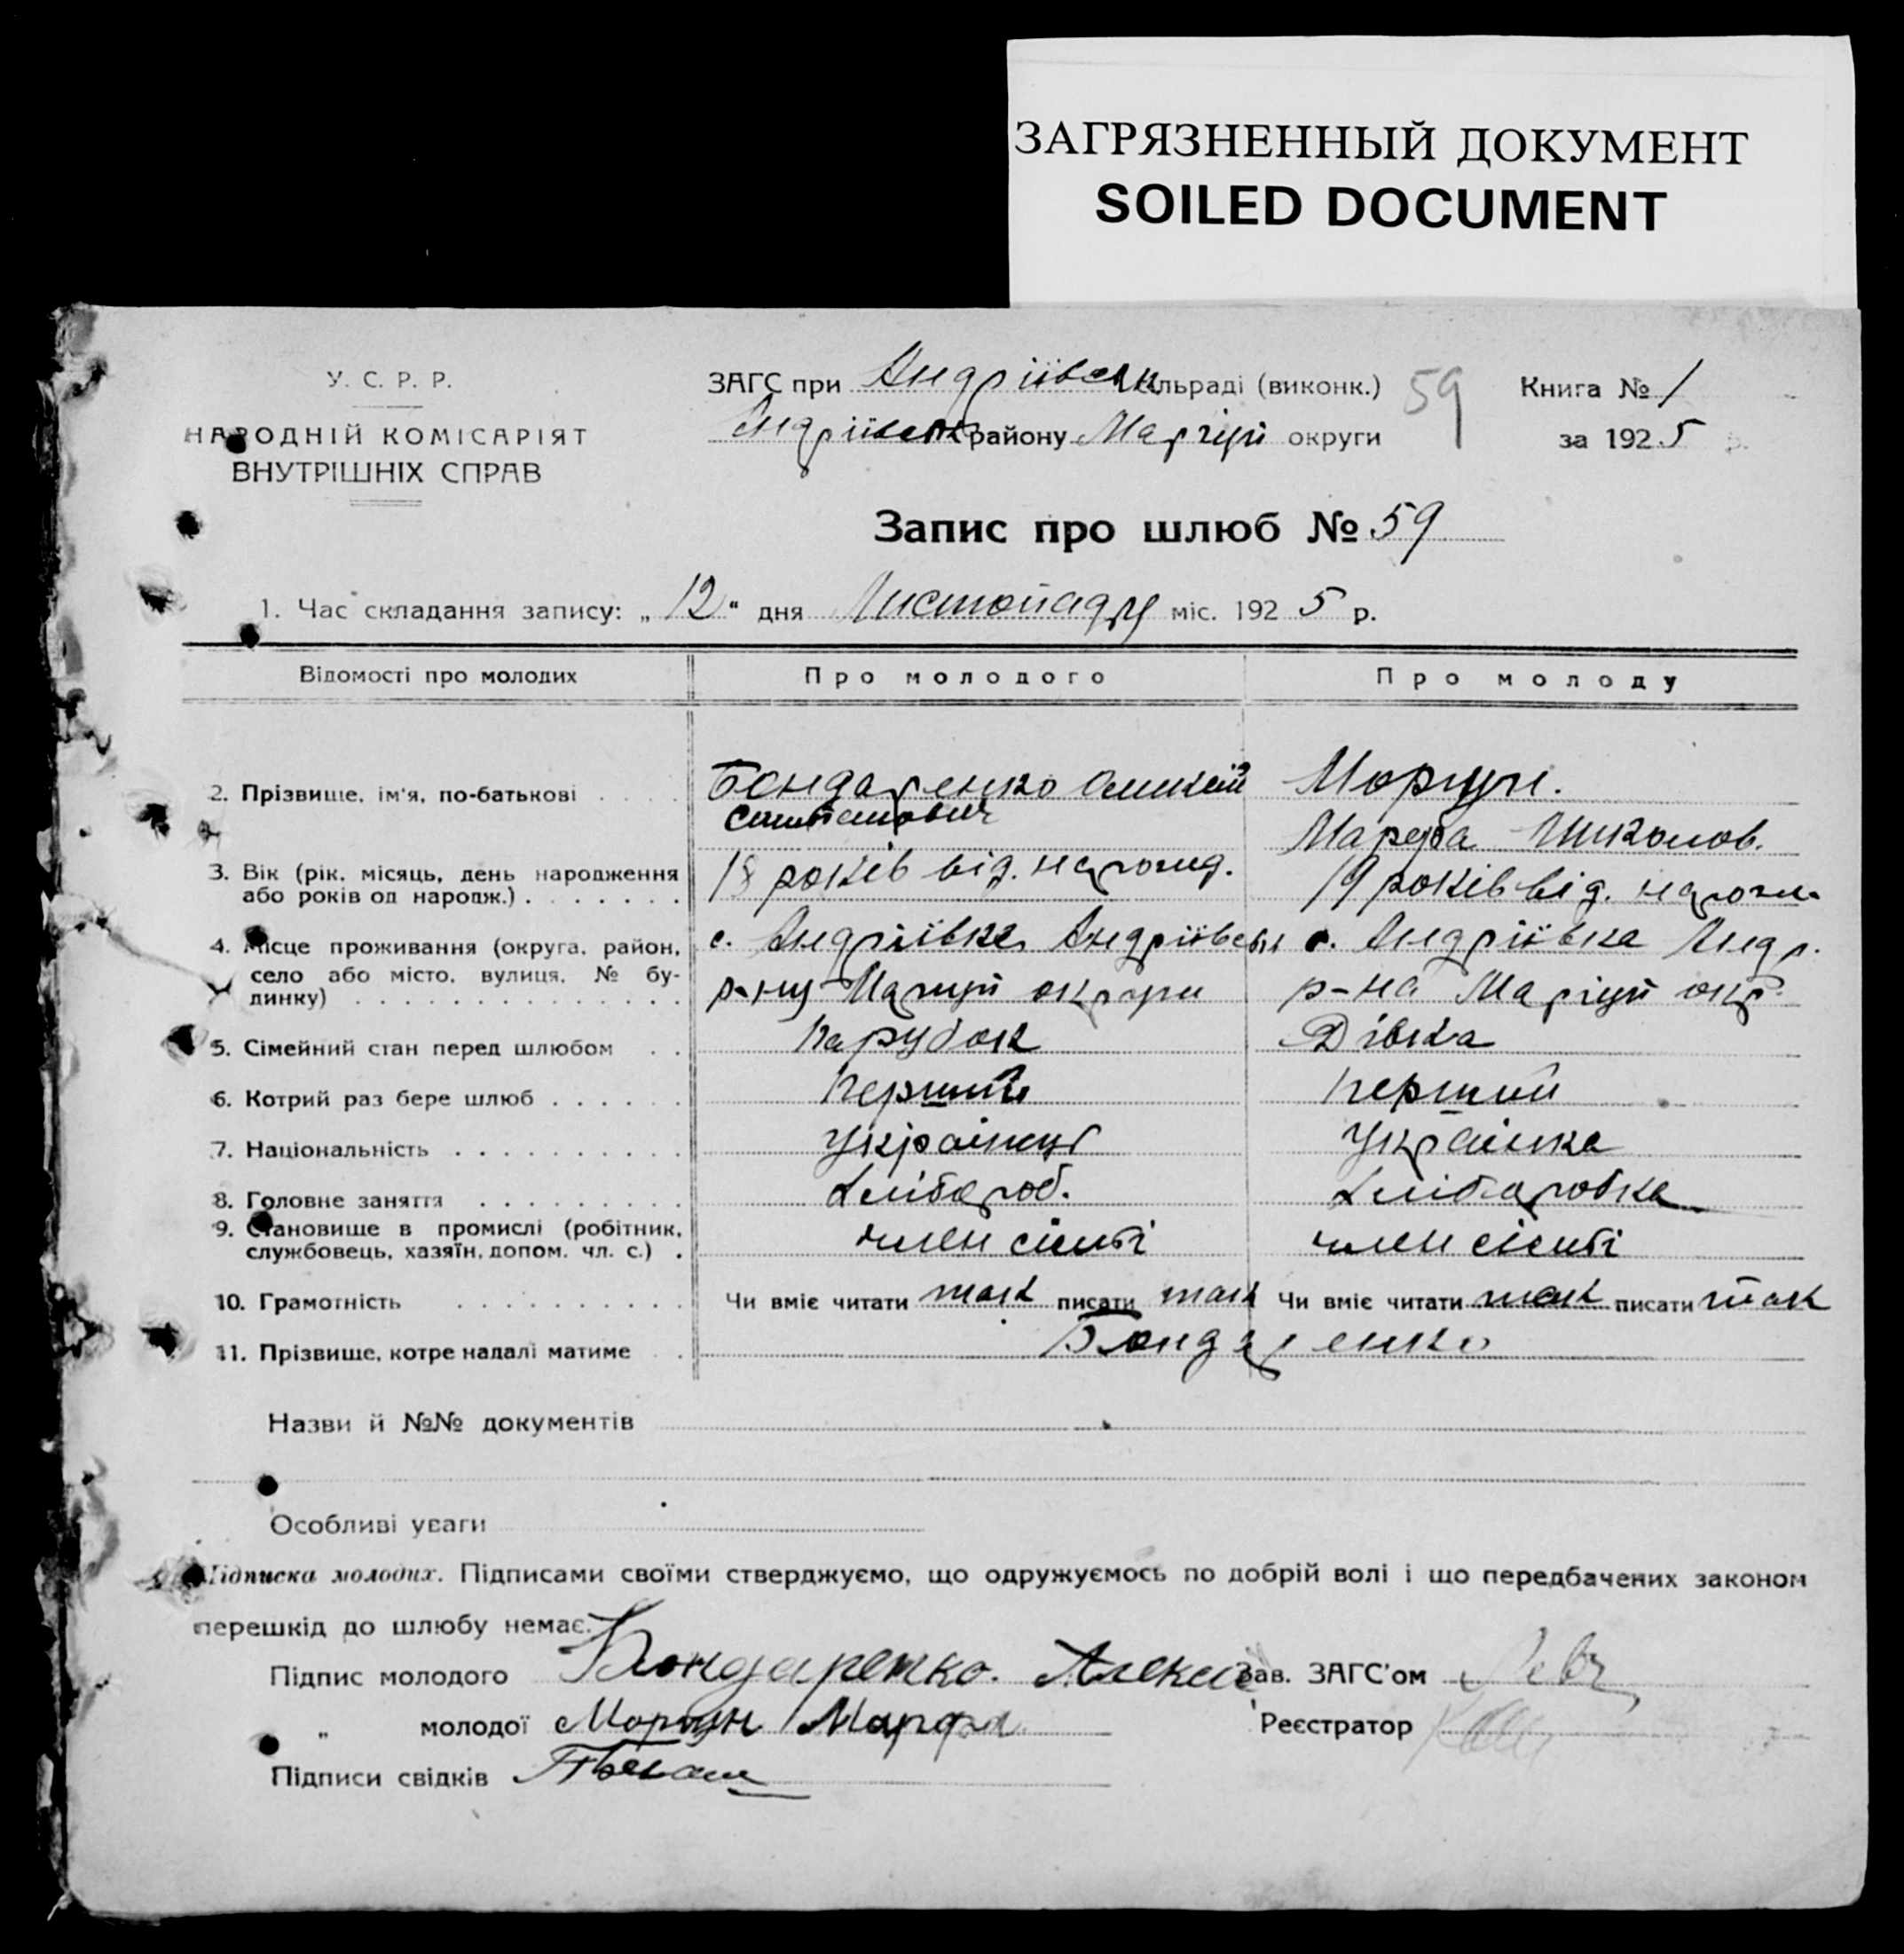 ЗАГРЯЗНЕННЫЙ ДОКУМЕНТ
SOILED DOCUMENT
У. С. Р. Р.
НАРОДНІЙ КОМІСАРІЯТ
ВНУТРІШНІХ СПРАВ
ЗАГС при Андріївськ ільраді (виконк.)
Андріївськ району Маріуп округи
59
Книга № 1
за 1925 р.
Запис про шлюб № 59
1. Час складання запису: „12" дня Листопаду міс. 1925 р.
Відомості про молодих Про молодого Про молоду
2. Прізвище, ім'я, по-батькові Бондаренко Олексій Морпун.
Марфа Николов.
3. Вік (рік, місяць, день народження 18 років від. народ. 19 років від. народж.
або років од народж.)
4. Місце проживання (округа, район, с. Андріївка Андріївськ с. Андріївка Андр.
село або місто, вулиця, № бу- р-ну Маріуп округи р-на Маріуп окр.
динку)
5. Сімейний стан перед шлюбом Парубок Дівка
6. Котрий раз бере шлюб Перший Перший
7. Національність Українець Українка
8. Головне заняття Хлібороб. Хліборобка
9. Становище в промислі (робітник, член сімьї член сімьї
службовець, хазяїн, допом. чл. с.)
10. Грамотність Чи вміє читати так писати так Чи вміє читати так писати так
11. Прізвище, котре надалі матиме Бондаренко
Назви й №№ документів
Особливі уваги
Підписка молодих. Підписами своїми стверджуємо, що одружуємось по добрій волі і що передбачених законом
перешкід до шлюбу немає.
Підпис молодого Бондаренко. Алексей Зав. ЗАГС'ом
„ молодої Морпун Марфа Реєстратор
Підписи свідків